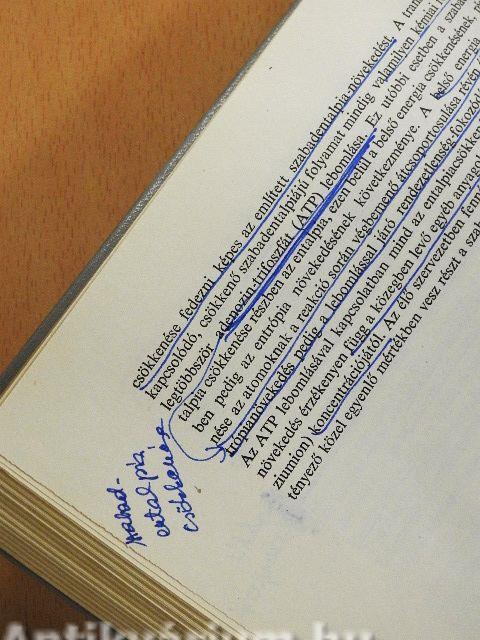 csökkenése fedezni képes az említett szabadentalpia-növekedést. A tran
kapcsolódó, csökkenő szabadentalpiájú folyamat mindig valamilyen kémiai
legtöbbször adenozin-trifoszfát (ATP) lebomlása. Ez utóbbi esetben a szaba
talpia csökkenése részben az entalpia, ezen belül a belső energia csökkenésének, ré
ben pedig az entrópia növekedésének következménye. A belső energi
nése az atomoknak a reakció során végbemenő átcsoportosulása révén
trópianövekedés pedig a lebomlással járó rendezetlenség fokozód
Az ATP lebomlásával kapcsolatban mind az entalpiacsökken
növekedés érzékenyen függ a közegben levő egyéb anyagok
ziumion) koncentrációjától. Az élő szervezetben fenn
tényező közel egyenlő mértékben vesz részt a szab
szabad-
entalpia
csökkenése
Antikvárium.hu